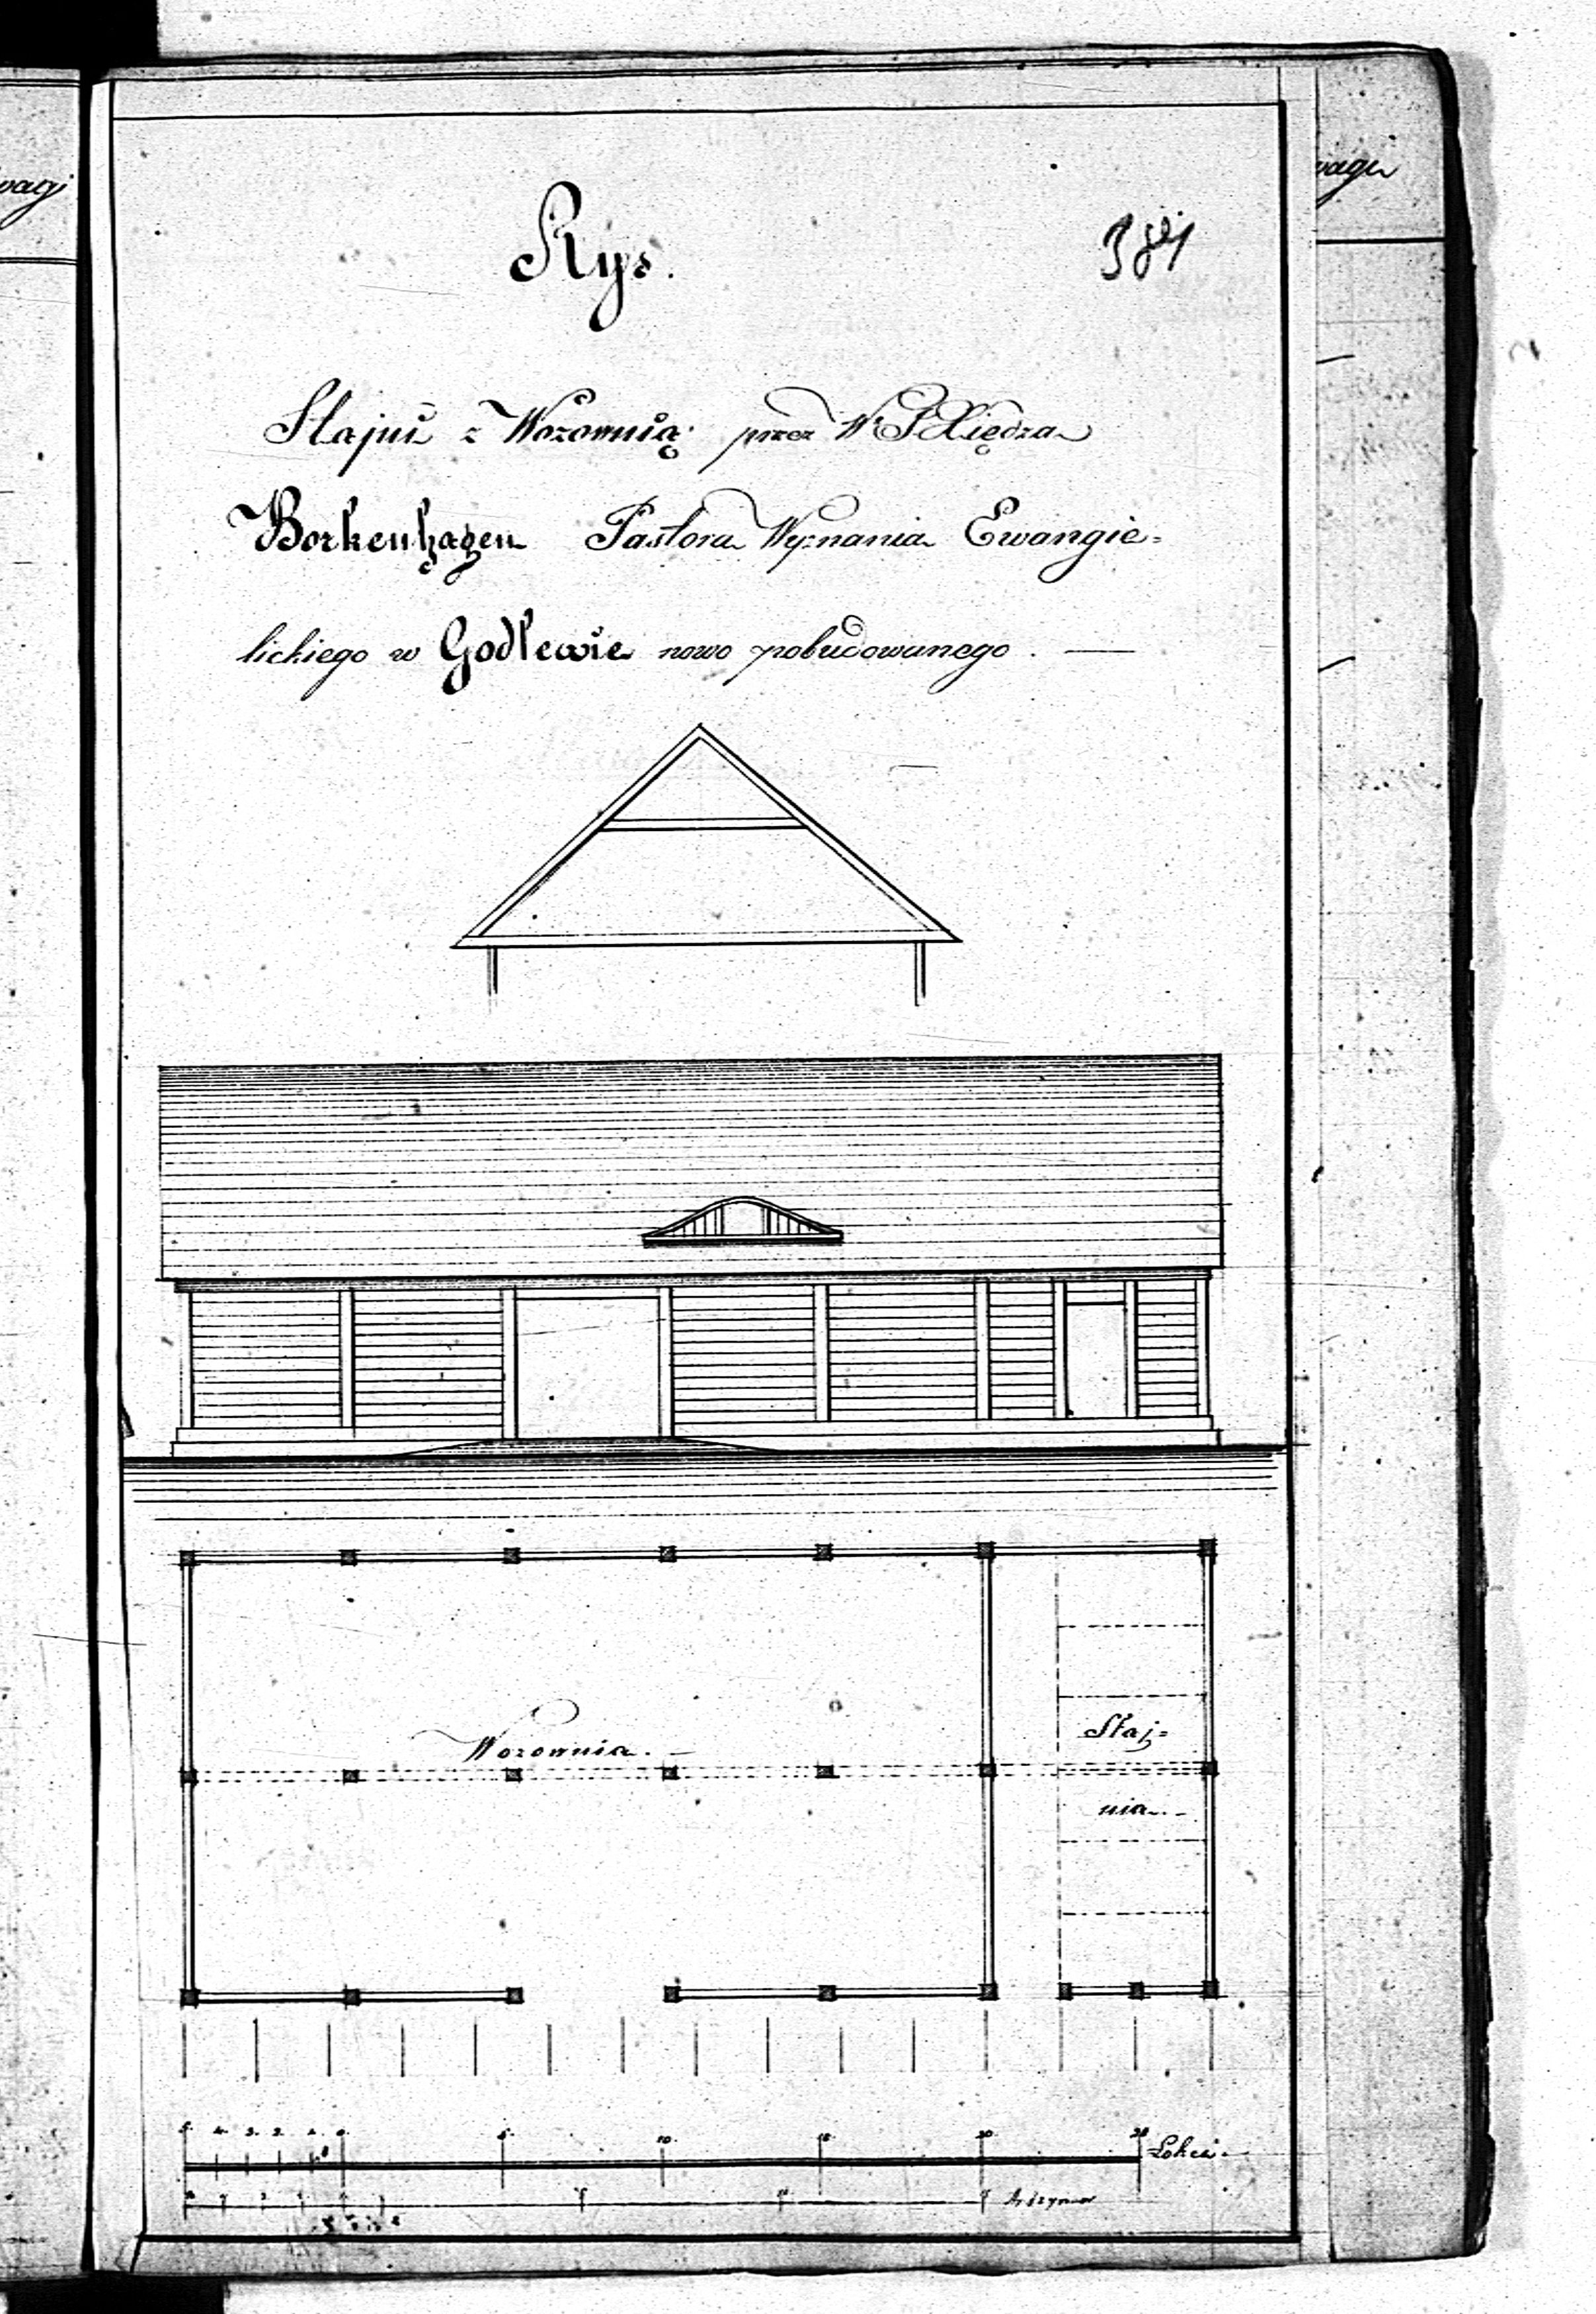 Rys.
Stajni z Wozownią przez W. Xiędza
Borkenhagen Pastora Wyznania Ewangie=
lickiego w Godlewie nowo pobudowanego. —
Wozownia. —
Staj=
nia. —
5. 4. 3. 2. 1. 0. 5. 10. 15. 20. 25 Łokci.
Arszynow